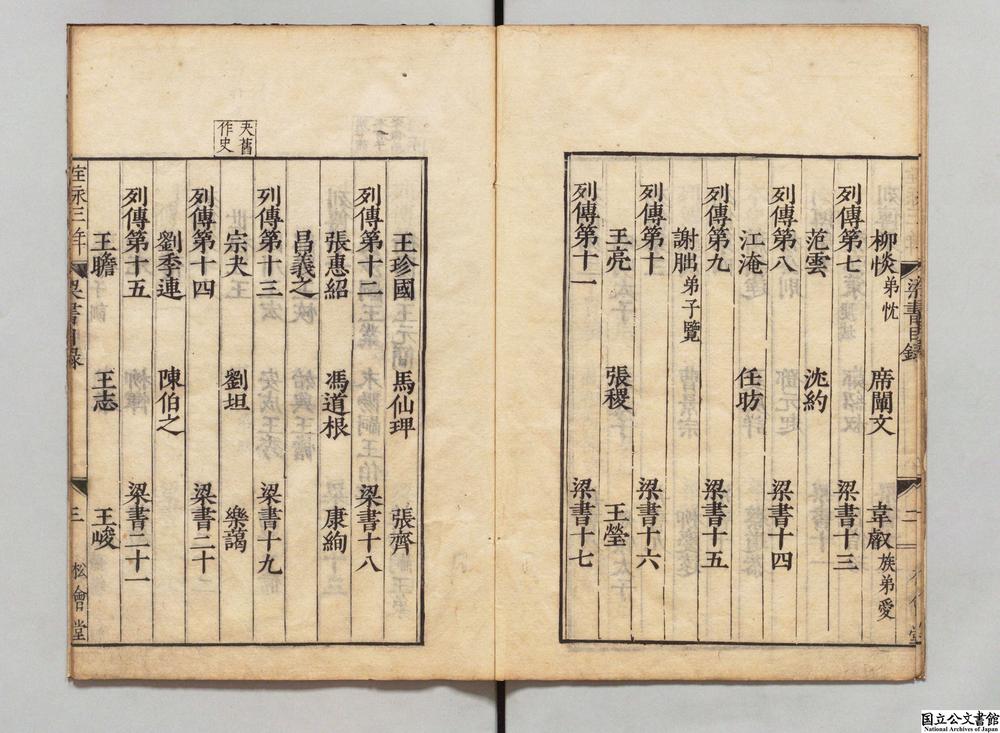 柳惔弟忱 席闡文 韋叡族弟愛
列傳第七 梁書十三
范雲 沈約
列傳第八 梁書十四
江淹 任昉
列傳第九 梁書十五
謝朏弟子覽
列傳第十 梁書十六
王亮 張稷 王瑩
列傳第十一 梁書十七
梁書目錄 二
王珍國 馬仙琕 張齊
列傳第十二 梁書十八
張惠紹 馮道根 康絢
昌義之
列傳第十三 梁書十九
宗夬 劉坦 樂藹
夬舊
作史
列傳第十四 梁書二十
劉季連 陳伯之
列傳第十五 梁書二十一
王瞻 王志 王峻
梁書目錄 三 松會堂
国立公文書館
National Archives of Japan